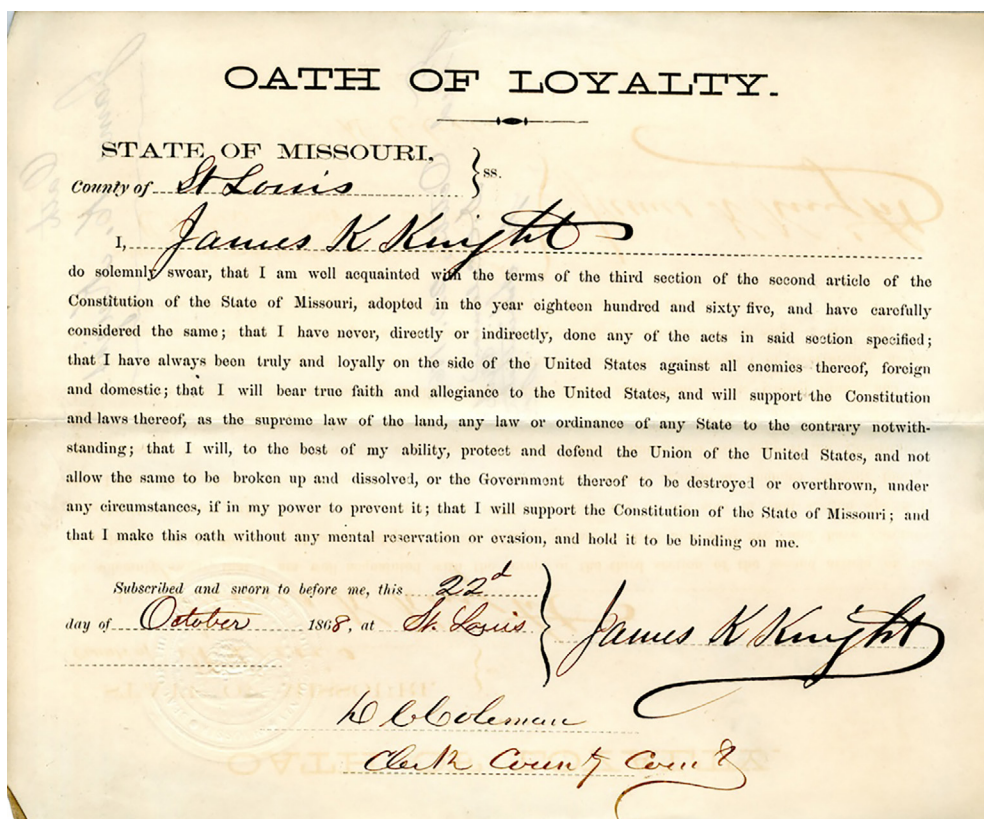 OATH OF LOYALTY.
STATE OF MISSOURI,
County of St Louis } ss.
I, James K Knight
do solemnly swear, that I am well acquainted with the terms of the third section of the second article of the
Constitution of the State of Missouri, adopted in the year eighteen hundred and sixty five, and have carefully
considered the same; that I have never, directly or indirectly, done any of the acts in said section specified;
that I have always been truly and loyally on the side of the United States against all enemies thereof, foreign
and domestic; that I will bear true faith and allegiance to the United States, and will support the Constitution
and laws thereof, as the supreme law of the land, any law or ordinance of any State to the contrary notwith-
standing; that I will, to the best of my ability, protect and defend the Union of the United States, and not
allow the same to be broken up and dissolved, or the Government thereof to be destroyed or overthrown, under
any circumstances, if in my power to prevent it; that I will support the Constitution of the State of Missouri; and
that I make this oath without any mental reservation or evasion, and hold it to be binding on me.
Subscribed and sworn to before me, this 22d
day of October 1868, at St. Louis
James K Knight
Coleman
Clerk County